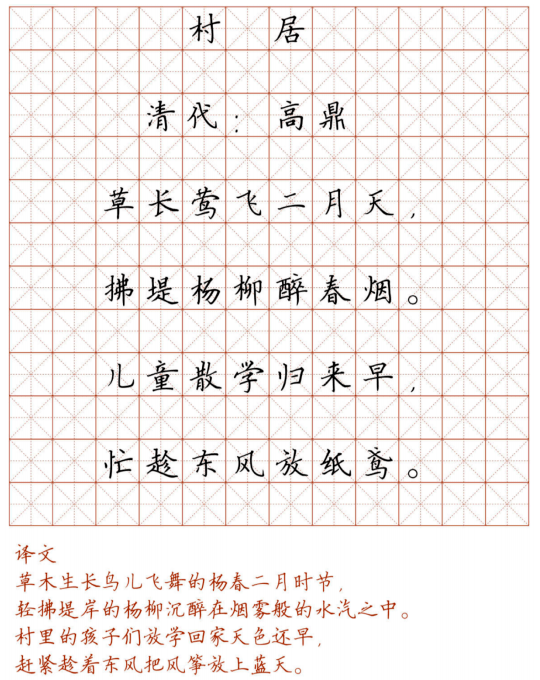 村居
清代：高鼎
草长莺飞二月天，
拂堤杨柳醉春烟。
儿童散学归来早，
忙趁东风放纸鸢。
译文
草木生长鸟儿飞舞的杨春二月时节，
轻拂堤岸的杨柳沉醉在烟雾般的水汽之中。
村里的孩子们放学回家天色还早，
赶紧趁着东风把风筝放上蓝天。